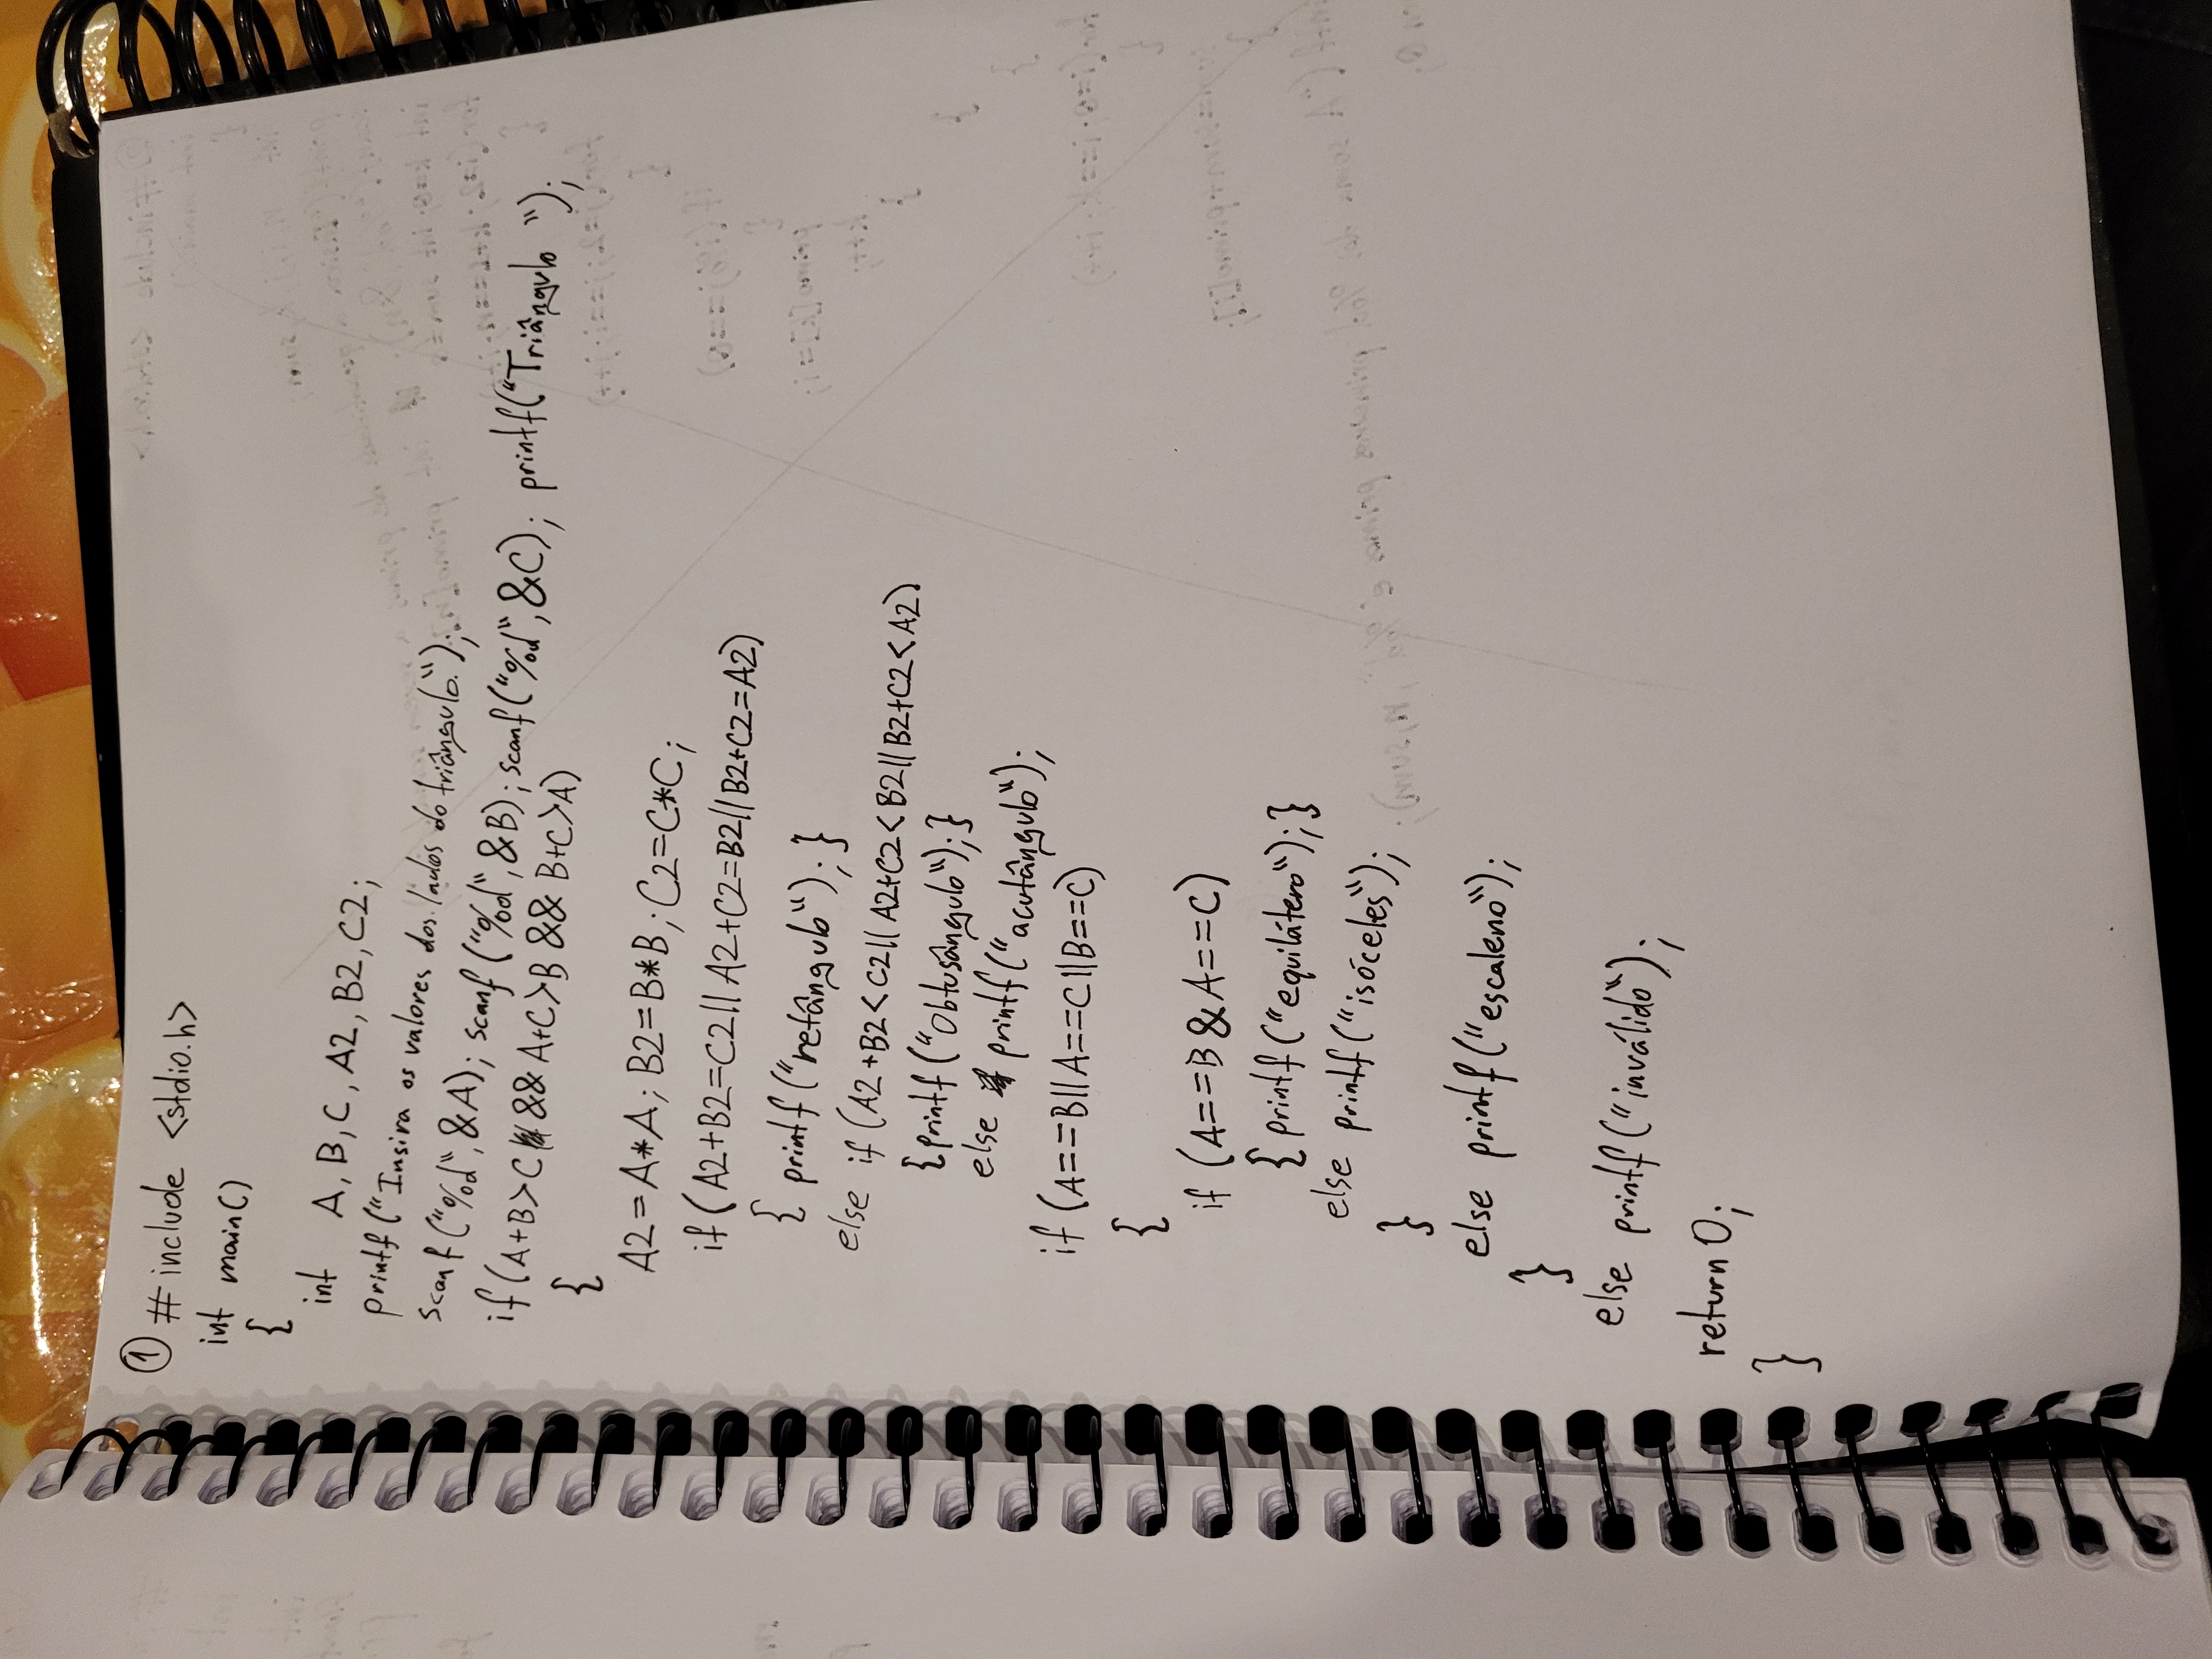 ① #include <stdio.h>
int main()
{
int A, B, C, A2, B2, C2;
printf("Insira os valores dos lados do triângulo.");
scanf("%d", &A); scanf("%d", &B); scanf("%d", &C); printf("Triângulo ");
if (A+B>C && A+C>B && B+C>A)
{
A2=A*A; B2=B*B; C2=C*C;
if (A2+B2=C2|| A2+C2=B2||B2+C2=A2)
{ printf("retângulo"); }
else if (A2+B2<C2|| A2+C2<B2||B2+C2<A2)
{printf("Obtusângulo");}
else printf("acutângulo");
if (A==B||A==C||B==C)
{
if (A==B & A==C)
{ printf("equilátero"); }
else printf("isóceles");
}
else printf("escaleno");
}
else printf("inválido");
return 0;
}